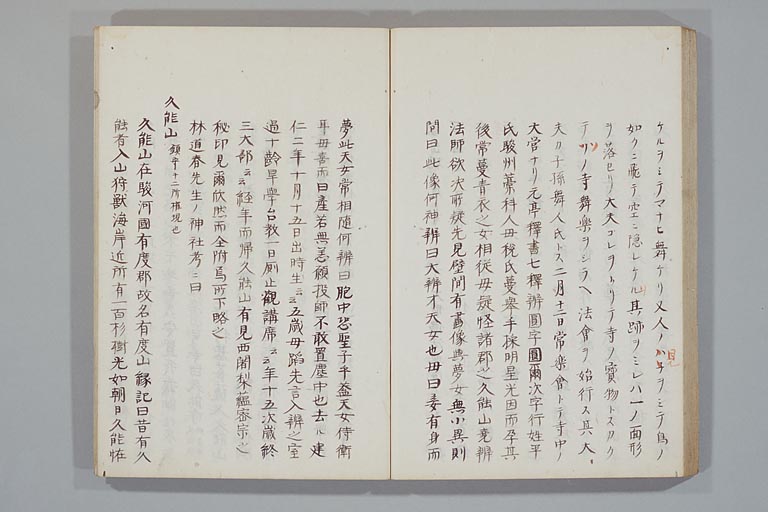 ケルヲミテマナヒ舞ケリ又人ノ見ヲミテ鳥ノ
如クニ飛テ空ニ隠レケル其跡ヲミレハ一ノ面形
ヲ落セリ大夫コレヲトリテ寺ノ寶物トスカク
テソノ寺舞楽ヲシラヘ法會ヲ始行ス其大
夫カ子孫舞人氏トス二月十二日常楽會トテ寺中ノ
大営ナリ元亨釋書七釋辨圓字圓爾次字行姓平
氏駿州藁科人母税氏夢挙手採明星光因而卒其
後常夢青衣之女相従母疑怪諸郡之久能山堯辨
法師欲決所疑先見壁間有畫像與夢女無小異則
問曰此像何神辨曰大辨才天女也母曰妾有身而
夢此天女常相随何辨曰胞中恐聖子乎盖天女侍衛
耳母喜而曰産若無恙願投師不敢置塵中也去ル建
仁二年十月十五日出時生云云五歳母蹈先言入辨之室
過十齢早學台教一日廁止觀講席云云年十五次歳終
三大部云云経年而帰久能山有見西闍梨蘊密宗之
秘印見爾欣然而全附焉所下略之
林道春先生ノ神社考ニ曰
久能山 鎮守十二所権現也
久能山在駿河國有度郡故名有度山縁記曰昔有久
能者入山狩獣海岸近所有一百杉樹光如朝日久能恠